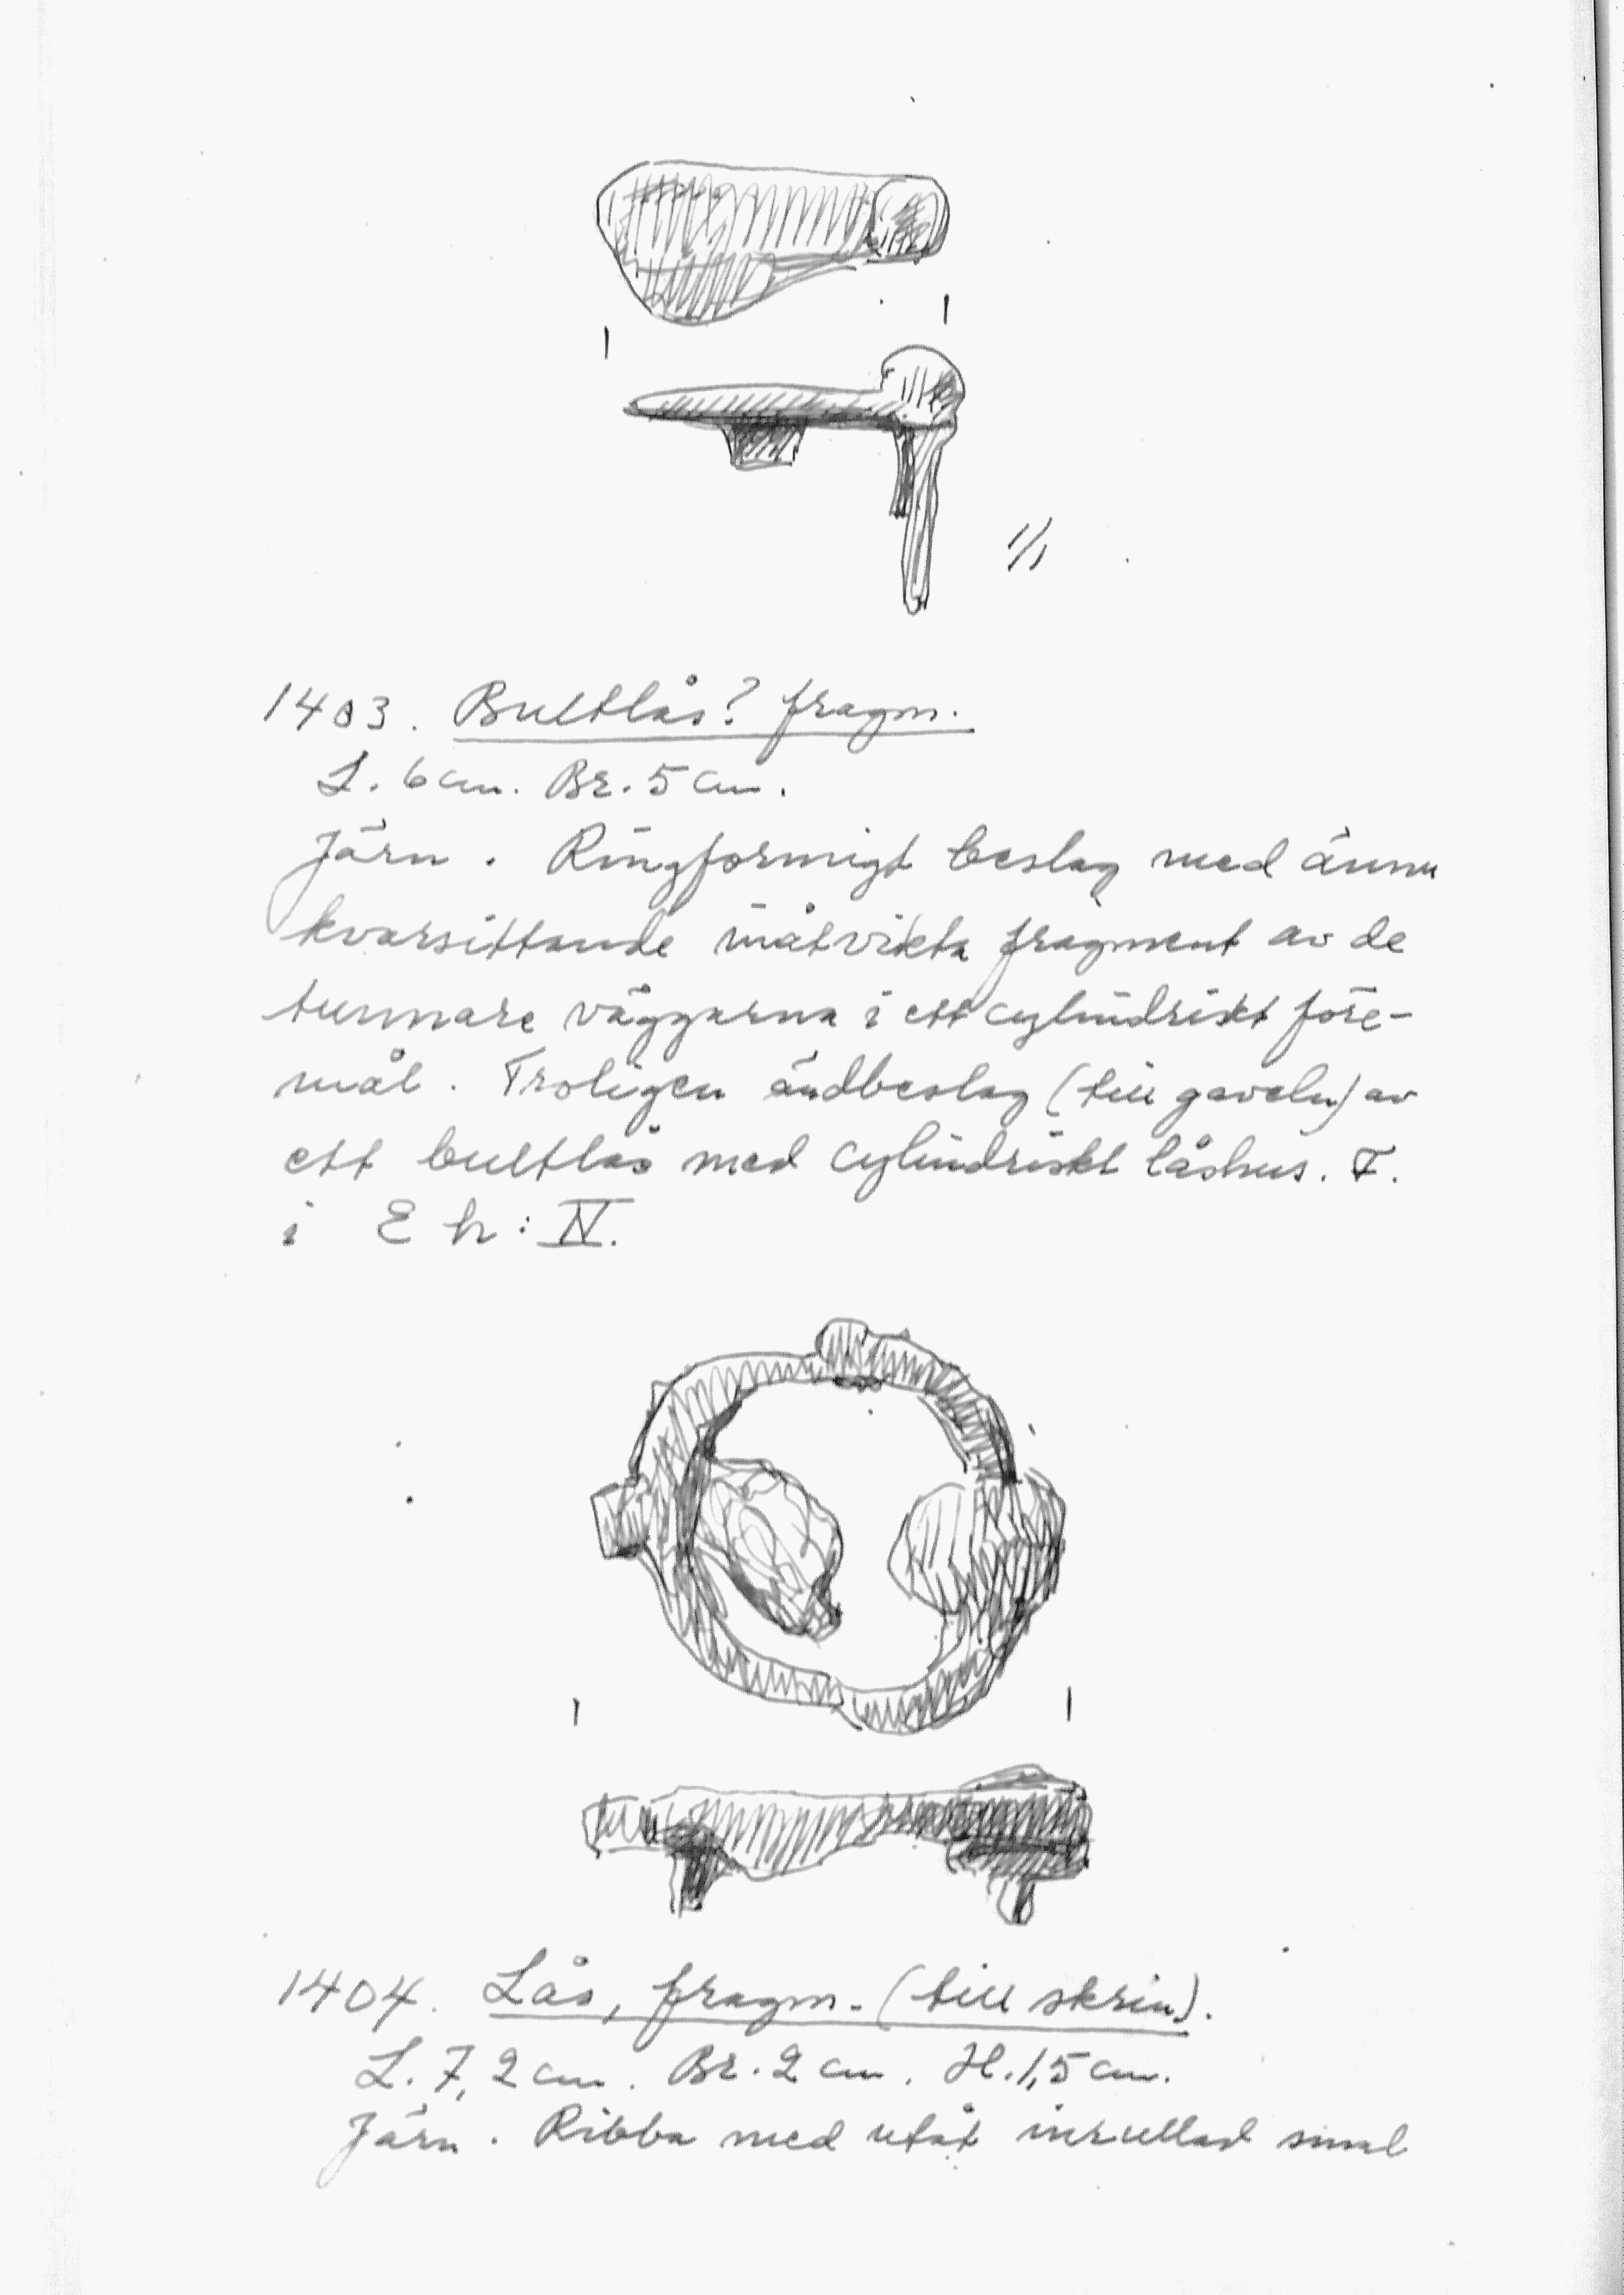 1/1
1403. Bultlås? fragm.
L. 6 cm. Br. 5 cm.
Järn. Ringformigt beslag med ännu
kvarsittande inåtvikta fragment av de
tunnare väggarna i ett cylindriskt före-
mål. Troligen ändbeslag (till gaveln) av
ett bultlås med cylindriskt låshus. F.
i E h: IV.
1404. Lås, fragm. (till skrin).
L. 7,2 cm. Br. 2 cm. H. 1,5 cm.
Järn. Ribba med utåt inrullad smal